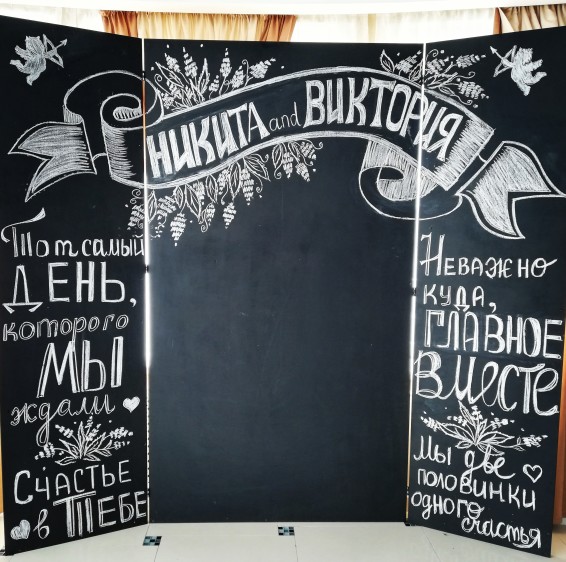 НИКИТА and ВИКТОРИЯ
Тот самый
ДЕНЬ,
которого
МЫ
ждали
СЧАСТЬЕ
в ТЕБЕ
НЕВАЖНО
КУДА,
ГЛАВНОЕ
ВМЕСТЕ
Мы две
половинки
одного
счастья